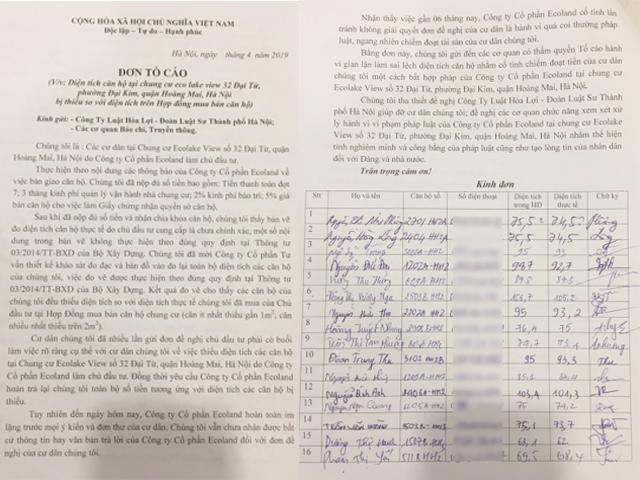 CỘNG HÒA XÃ HỘI CHỦ NGHĨA VIỆT NAM
Độc lập – Tự do – Hạnh phúc
Hà Nội, ngày tháng 4 năm 2019
ĐƠN TỐ CÁO
(V/v: Diện tích căn hộ tại chung cư eco lake view 32 Đại Từ,
phường Đại Kim, quận Hoàng Mai, Hà Nội
bị thiếu so với diện tích trên Hợp đồng mua bán căn hộ)
Kính gửi: - Công Ty Luật Hòa Lợi - Đoàn Luật Sư Thành phố Hà Nội;
- Các cơ quan Báo chí, Truyền thông.
Chúng tôi là : Các cư dân tại Chung cư Ecolake View số 32 Đại Từ, quận
Hoàng Mai, Hà Nội do Công ty Cổ phần Ecoland làm chủ đầu tư.
Thực hiện theo nội dung các thông báo của Công ty Cổ phần Ecoland về
việc bàn giao căn hộ. Chúng tôi đã nộp đủ số tiền bao gồm: Tiền thanh toán đợt
7; 3 tháng kinh phí quản lý vận hành nhà chung cư; 2% kinh phí bảo trì; 5% giá
bán căn hộ cho việc làm Giấy chứng nhận quyền sở căn hộ.
Sau khi đã nộp đủ số tiền và nhận chìa khóa căn hộ, chúng tôi thấy bản vẽ
đo diện tích căn hộ thực tế do chủ đầu tư cung cấp là chưa chính xác, một số nội
dung trong bản vẽ không thực hiện theo đúng quy định tại Thông tư
03/2014/TT-BXD của Bộ Xây Dựng. Chúng tôi đã mời Công ty Cổ phần Tư
vấn thiết kế khảo sát đo đạc và bản đồ vào đo lại toàn bộ diện tích các căn hộ
của chúng tôi, việc đo vẽ được thực hiện theo đúng quy định tại Thông tư
03/2014/TT-BXD của Bộ Xây Dựng. Kết quả đo vẽ cho thấy các căn hộ của
chúng tôi đều thiếu diện tích so với diện tích thực tế chúng tôi đã mua của Chủ
đầu tư tại Hợp đồng mua bán căn hộ chung cư (căn ít nhất thiếu gần 1m2; căn
nhiều nhất thiếu trên 2m2).
Cư dân chúng tôi đã nhiều lần gửi đơn đề nghị chủ đầu tư phải có buổi
làm việc rõ ràng cụ thể với cư dân chúng tôi về việc thiếu diện tích các căn hộ
tại Chung cư Ecolake View số 32 Đại Từ, quận Hoàng Mai, Hà Nội do Công ty
Cổ phần Ecoland làm chủ đầu tư. Đồng thời yêu cầu Công ty Cổ phần Ecoland
hoàn trả lại chúng tôi toàn bộ số tiền tương ứng với diện tích các căn hộ bị
thiếu.
Tuy nhiên đến ngày hôm nay, Công ty Cổ phần Ecoland hoàn toàn im
lặng trước mọi ý kiến và đơn thư của cư dân. Chúng tôi vẫn chưa nhận được bất
cứ thông tin hay văn bản trả lời của Công ty Cổ phần Ecoland đối với đơn đề
nghị của cư dân chúng tôi.
Nhận thấy việc gần 06 tháng nay, Công ty Cổ phần Ecoland cố tình lẩn
tránh không giải quyết đơn đề nghị của cư dân là hành vi quá coi thường pháp
luật, ngang nhiên chiếm đoạt tài sản của cư dân chúng tôi.
Bằng đơn này, chúng tôi gửi đến các cơ quan có thẩm quyền Tố cáo hành
vi gian lận làm sai lệch diện tích căn hộ nhằm cố tình chiếm đoạt tiền của cư dân
chúng tôi một cách bất hợp pháp của Công ty Cổ phần Ecoland tại chung cư
Ecolake View số 32 Đại Từ, phường Đại Kim, quận Hoàng Mai, Hà Nội.
Chúng tôi tha thiết đề nghị Công Ty Luật Hòa Lợi - Đoàn Luật Sư Thành
phố Hà Nội giúp đỡ cư dân chúng tôi; đề nghị các cơ quan chức năng xem xét xử
lý hành vi vi phạm pháp luật của Công ty Cổ phần Ecoland tại chung cư Ecolake
View số 32 Đại Từ, phường Đại Kim, quận Hoàng Mai, Hà Nội nhằm thể hiện
tính nghiêm minh và công bằng của pháp luật cũng như tạo lòng tin của nhân dân
đối với Đảng và nhà nước.
Trân trọng cảm ơn!
Kính đơn
Stt Họ và tên Căn hộ số Số điện thoại Diện tích trong HĐ Diện tích thực tế Chữ ký
1 75,5 74,5
2 Nguyễn 2404 75,5 74,5
3 95
4 Nguyễn 1202A 94,7 92,7
5
6
7 Nguyễn 2202A 95 93,2
8 Hoàng 76,4 75
9
10 Đoàn Trung 3102 95 93,3
11 Nguyễn
12 Nguyễn 103,4 101,3
13 75 74,2
14 75,1 73,7
15 Dương Thị 63,1 62
16 Phan Thị 69,5 68,4